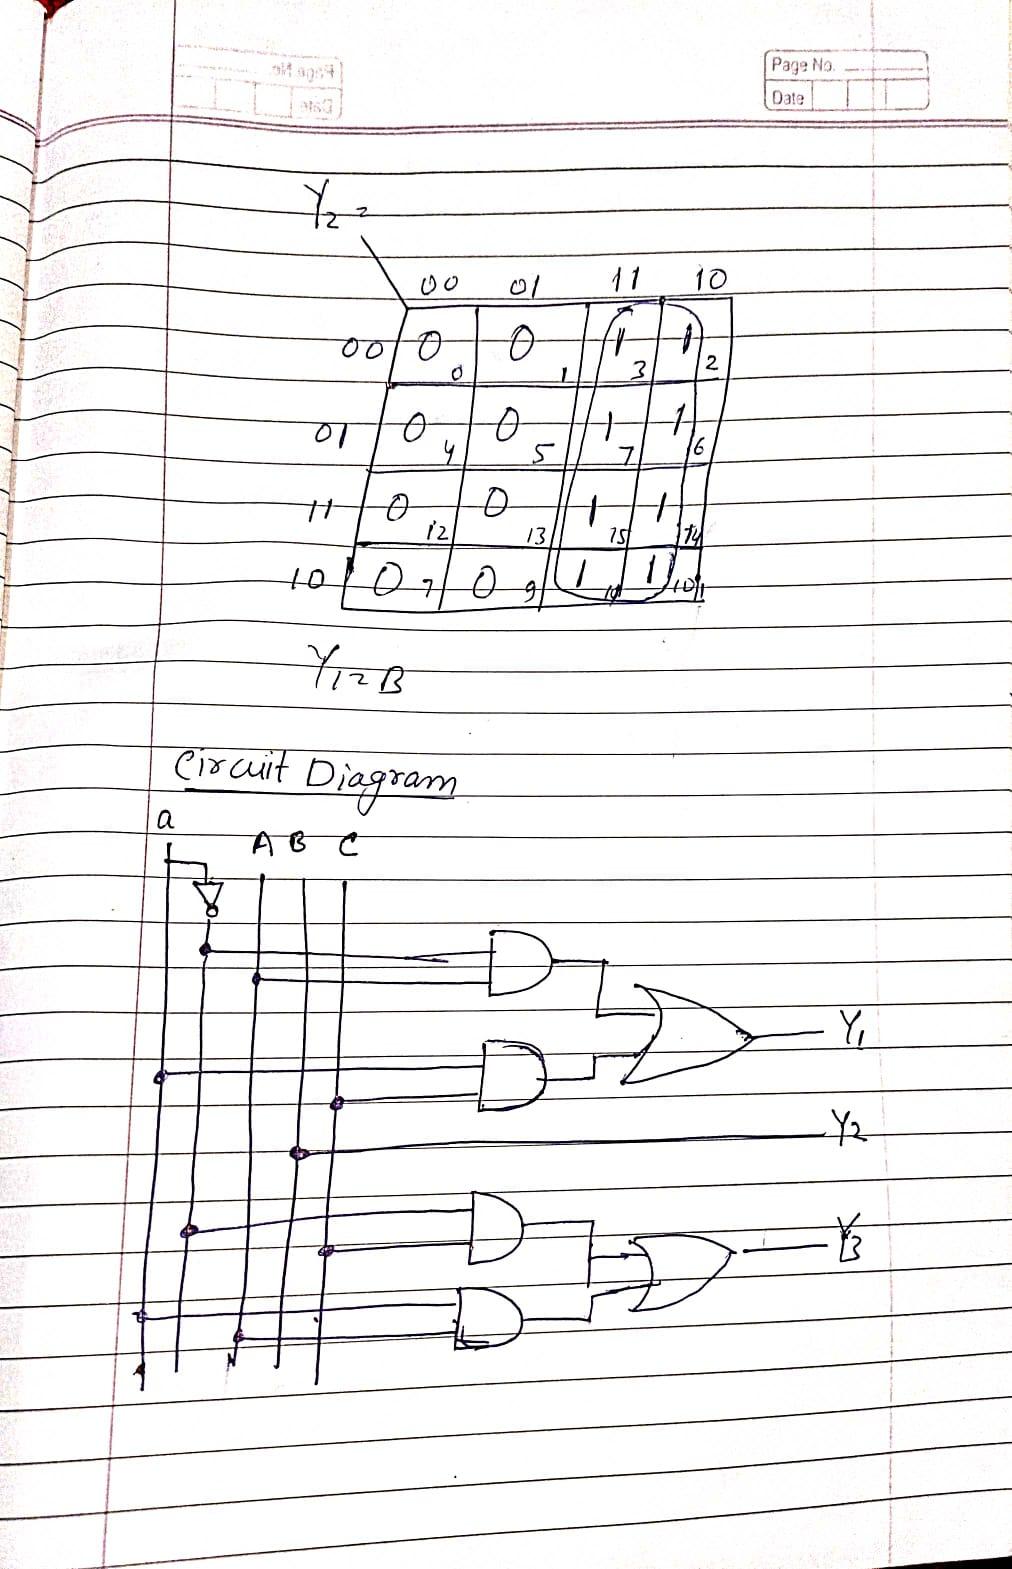 Page No.
Date
Y2 =
00 01 11 10
00 0 0 0 1 1 3 1 2
01 0 4 0 5 1 7 1 6
11 0 12 0 13 1 15 1 14
10 0 7 0 9 1 1 10
Y1 = B
Circuit Diagram
a
A B C
Y1
Y2
Y3